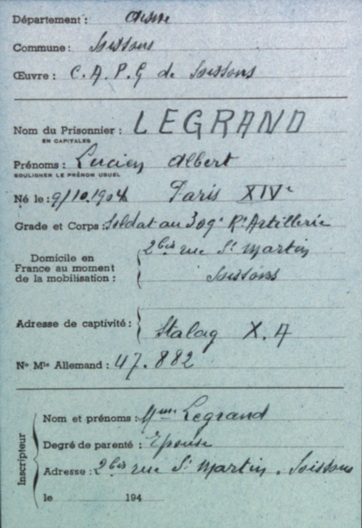 Département : Aisne
Commune : Soissons
Œuvre : C.A.P.G de Soissons
Nom du Prisonnier : LEGRAND
EN CAPITALES
Prénoms : Lucien Albert
SOULIGNER LE PRÉNOM USUEL
Né le : 9/10.1904 Paris XIVe
Grade et Corps : Soldat au 309e Rt Artillerie
Domicile en France au moment de la mobilisation : 26bis rue St Martin
Soissons
Adresse de captivité : Stalag X.A
No Mle Allemand : 47.882
Inscripteur
Nom et prénoms : Mme Legrand
Degré de parenté : Epouse
Adresse : 26bis rue St Martin. Soissons
le 194